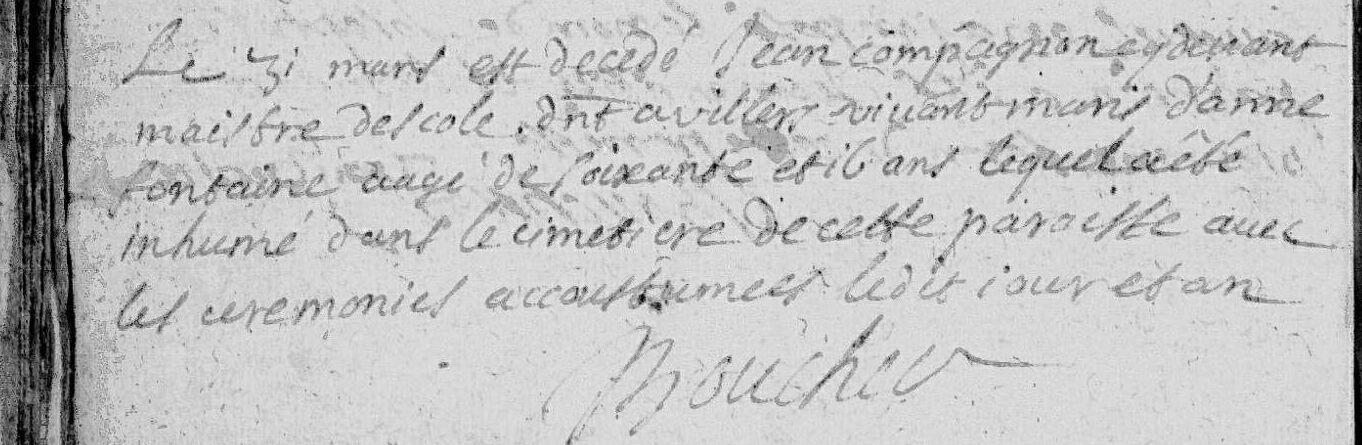 Le 21 mars est decedé Jean compagnon cy devant
maistre descole . dnt a villers vivant maris d'anne
fontaine aagé de soixante et 16 ans lequel a êté
inhumé dans le cimetiere de cette paroisse avec
les ceremonies accoustumees ledit iour et an
Boucher